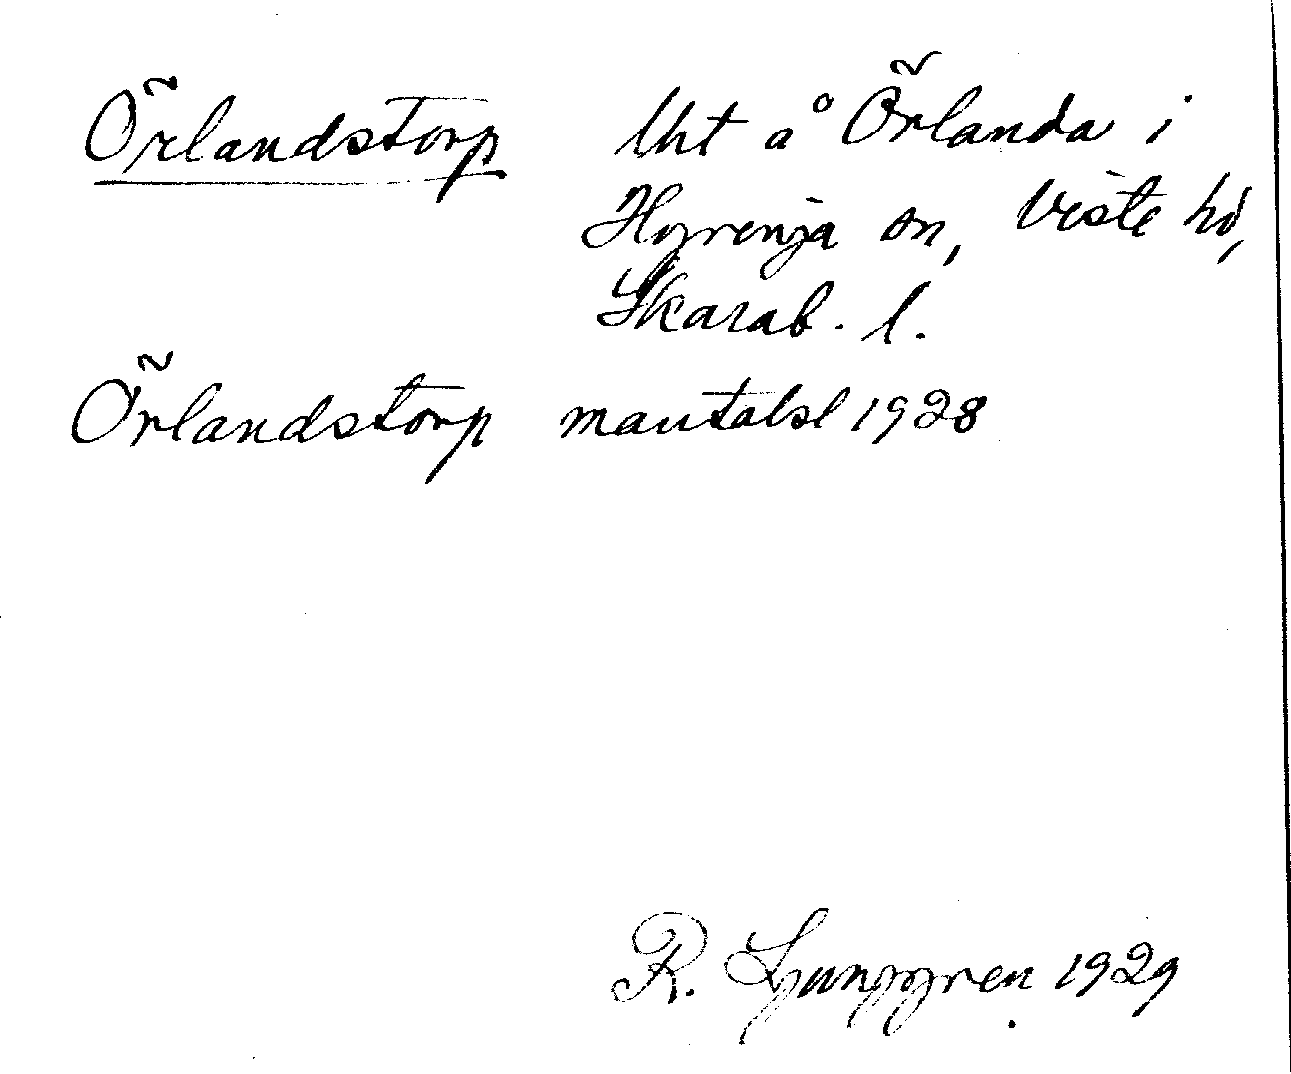 Örlandstorp lht å Örlanda i
Hyrenja sn, Viste hd,
Skarab. l.
Örlandstorp mantalsl 1928
R. Ljunggren 1929